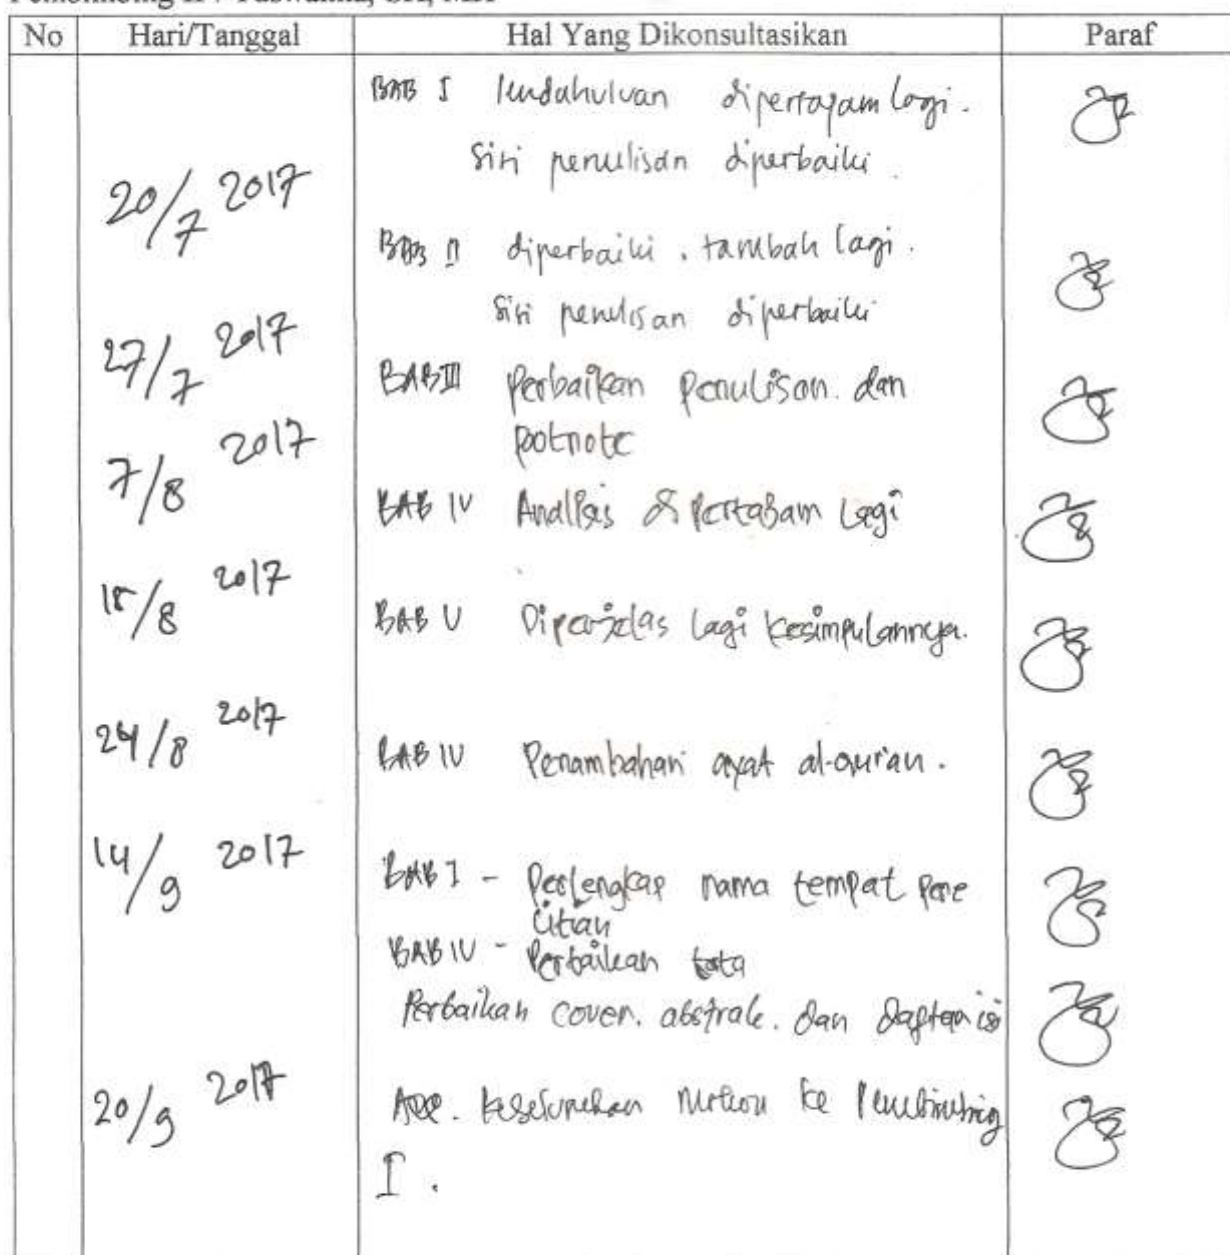 No Hari/Tanggal Hal Yang Dikonsultasikan Paraf
BAB I Pendahuluan dipertajam lagi.
Sisi penulisan diperbaiki.
20/7 2017
BAB II diperbaiki. tambah lagi.
Sisi penulisan diperbaiki
27/7 2017
BAB III Perbaikan Penulisan. dan
Footnote
7/8 2017
BAB IV Analisis dipertajam Lagi
18/8 2017
BAB V Diperjelas lagi kesimpulannya.
24/8 2017
BAB IV Penambahan ayat al-qur'an.
14/9 2017
BAB I - Perlengkap nama tempat pene
litian
BAB IV - Perbaikan
Perbaikan cover. abstrak. dan daftar isi
20/9 2017
Acc. keseluruhan ke Pembimbing
I.